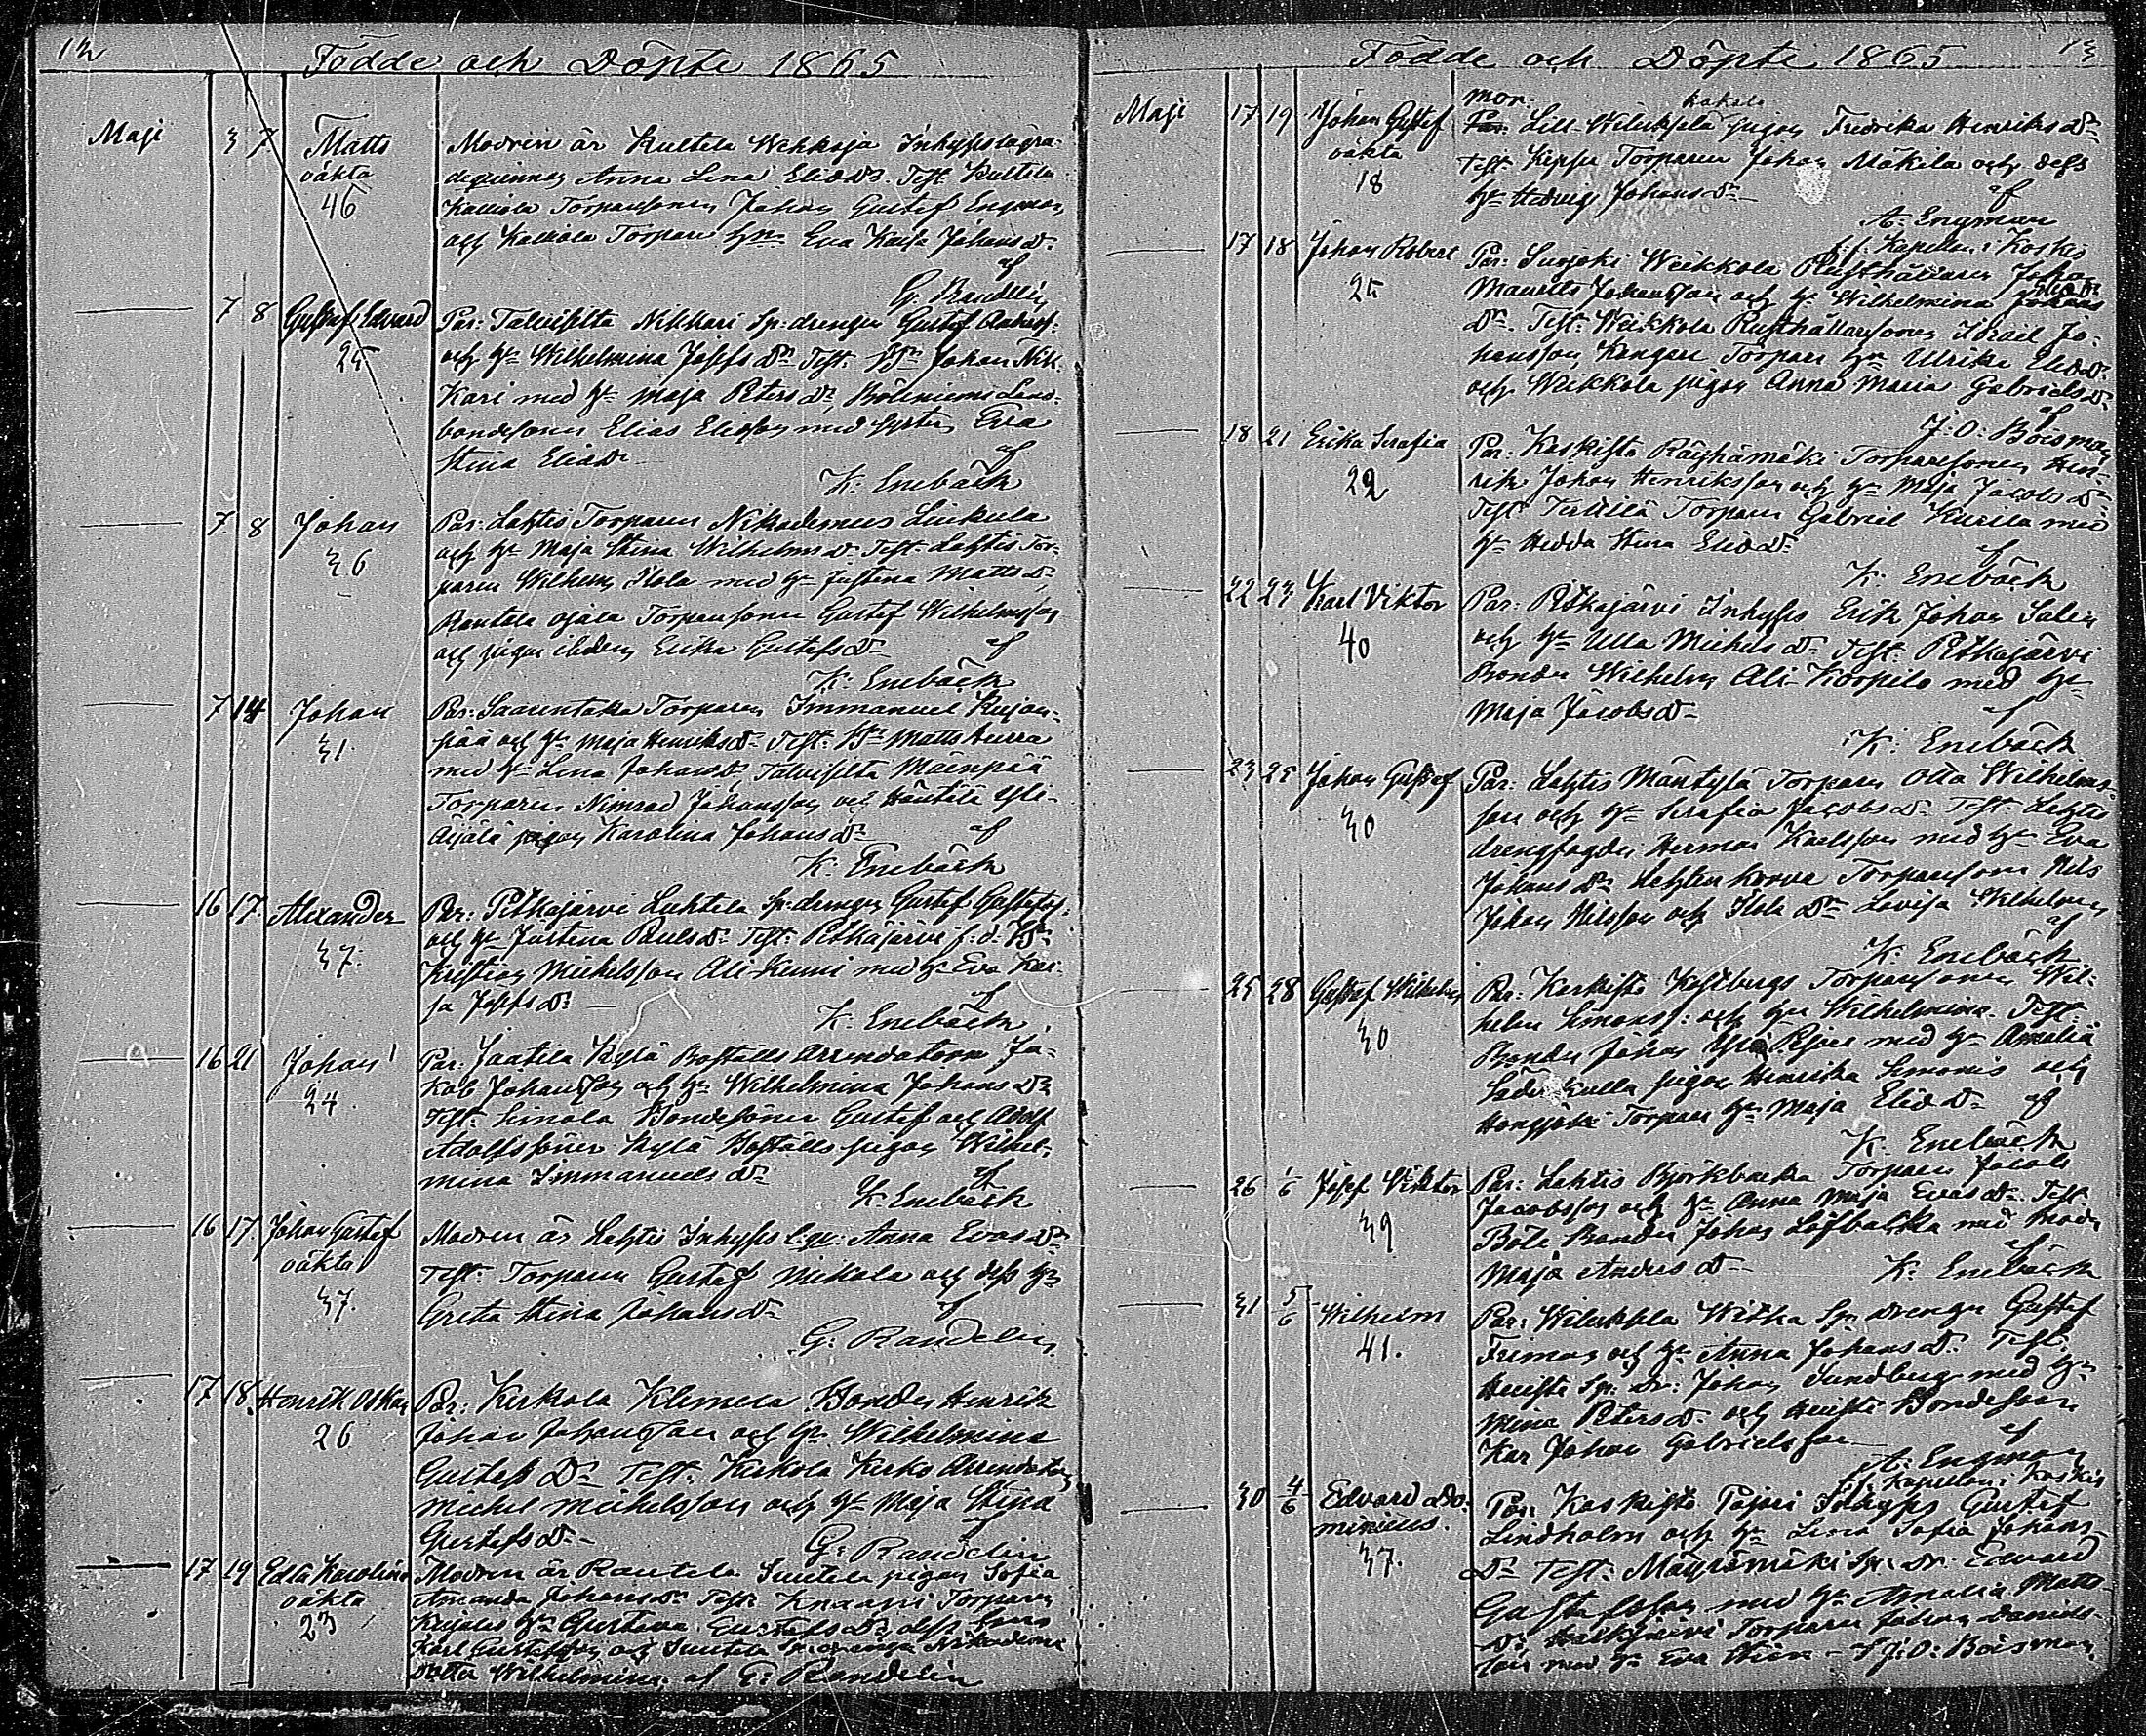 12
Födde och Döpte 1865
Maji 3 7 Matts
oäkta
46
Modren är Kultela Wehkoja Inhyses lägra-
deqvinnan Anna Lena Eliæ Dr. Test. Kultela
Kalliola Torparesonen Johan Gustaf Engman
och Kalliola Torpare Hn Eva Kaisa Johans Dr.
af
G. Randelin
7 8 Gustaf Edvard
25
Par: Talvisilta Nikkari Sp: drengen Gustaf Anderss:
och Hn Wilhelmina Josefs Dr Test: Bdn Johan Nik-
kari med Hn Maja Peters Dr, Böleniemi Lands-
bondesonen Elias Eliasson med Syster Eva
Stina Eliæ Dr
af
K. Enebäck
7 8 Johan
36
Par: Lahtis Torparen Nikodemus Liukula
och Hn Maja Stina Wilhelms Dr Test. Lahtis Tor-
paren Wilhelm Isola med Hn Justina Matts Dr
Rautela Ojala Torparesonen Gustaf Wilhelmsson
och pigan ibidem Erika Gustafs Dr
af
K. Enebäck
7 14 Johan
31.
Par: Saarentaka Torparen Immanuel
pää och Hn Maja Henriks Dr Test: Bdn Matts Hurra
med Hn Lena Johans Dr Talvisilta Mäenpää
Torparen Nimrod Johansson och Häntälä Yli-
Äijälä pigan Karolina Johans Dr
af
K. Enebäck
16 17 Alexander
37.
Par: Pitkäjärvi Luhtela Sp: drengen Gustaf Gustafss:
och Hn Justina Pauls Dr Test: Pitkäjärvi f. d. Bdn
Kristian Michelsson Ali Kunni med Hn Eva Kai-
sa Josefs Dr
af
K. Enebäck
16 21 Johan
24
Par: Jaatila Kylä Boställs Arrendatorn Ja-
kob Johansson och Hn Wilhelmina Johans Dr
Test: Simola Bondesöner Gustaf och Adolf
Adolfssöner Kylä Boställs pigan Wilhel-
mina Immanuels Dr
af
K. Enebäck
16 17 Johan Gustaf
oäkta
37.
Modren är Lahtis Inhyses Anna Evas Dr
Test: Torparen Gustaf Mikola och dess Hn
Greta Stina Johans Dr
af
G. Randelin
17 18 Henrik Oskar
26
Par: Kerkola Klemela Bonden Henrik
Johan Johansson och Hn Wilhelmina
Gustafs Dr Test: Kerkola Kerko Arrendatorn
Michel Michelsson och Hn Maja Stina
Gustafs Dr
af
G. Randelin
17 19 Edla Karolina
oäkta
23
Modren är Rautela Suutela pigan Sofia
Amanda Johans Dr Test: Knaapi Torparen
Hn Gustava Gustafs Dr dess
Karl Gustafsson och Suutela Sp: drengen
Dotter Wilhelmina af G: Randelin
Födde och Döpte 1865
13
Maji 17 19 Johan Gustaf
oäkta
18
Mor.
Lill-Wiluksela pigan Fredrika Henriks Dr
Test: Torparen Johan Mäkilä och dess
Hn Hedvig Johans Dr
af
A: Engman
t. f. Kapellan i Koskis
17 18 Johan Robert
25
Par: Suojoki Weikkola Rusthållaren Johan
Maurits Johansson och Hn Wilhelmina
Dr. Test: Weikkola Rusthållaresonen Israel Jo-
hansson, Kangare Torpare Hn Ulrika Eliæ Dr
och Weikkola pigan Anna Maria Gabriels Dr
af
J: O: Boisman
18 21 Erika Serafia
22
Par: Koskisto Räyhämäki Torparesonen Hen-
rik Johan Henriksson och Hn Maja Jacobs Dr
Test: Tertilä Torparen Gabriel Kurila med
Hn Hedda Stina Eliæ Dr
af
K: Enebäck
22 23 Karl Viktor
40
Par: Pitkäjärvi Inhyses Erik Johan Salin
och Hn Ulla Michels Dr Test: Pitkäjärvi
Bonden Wilhelm Ali-Korpilo med Hn
Maja Jacobs Dr
af
K: Enebäck
23 25 Johan Gustaf
30
Par: Lahtis Mäntylä Torparen Otto Wilhelms-
son och Hn Serafia Jacobs Dr Test: Lahtis
drengfogden Herman Karlsson med Hn Eva
Johans Dr Korva Torparesonen Nils
Johan Nilsson och Isola Dr Lovisa Wilhelmina
af
K. Enebäck
25 28 Gustaf Wilhelm
30
Par: Koskisto Koskbergs Torparesonen Wil-
helm Simonss: och Hn Wilhelmina. Test:
Bonden Johan med Hn Amalia
Söderkulla pigan Henrika Simons och
Hongjoki Torpare Hn Maja Eliæ Dr
af
K. Enebäck
26 1/6 Josef Viktor
39
Par: Lahtis Björkbacka Torparen Jacob
Jacobsson och Hn Anna Maja Evas Dr. Test:
Böle Bonden Johan Löfbacka med Moder
Maja Anders Dr
af
K: Enebäck
31 5/6 Wilhelm
41.
Par: Wiluksela Sp: drengen Gustaf
Friman och Hn Anna Johans Dr Test:
Sp: Dr: Johan Sundberg med Hn
Mina Peters Dr. och Bondesson
Kar Johan Gabrielsson
af
A: Engman
t. f. Kapellan i Koskis
30 4/6 Edvard Do-
minicus.
37.
Par: Koskisto Pajari Inhyses Gustaf
Lindholm och Hn Lena Sofia Johans
Dr Test: Mäyrämäki Sp: Dr: Edvard
Gustafsson med Hn Amalia Matts
Dr Halkjärvi Torparen Johan Daniels-
son med Hn Eva Stina - af J: O: Boisman